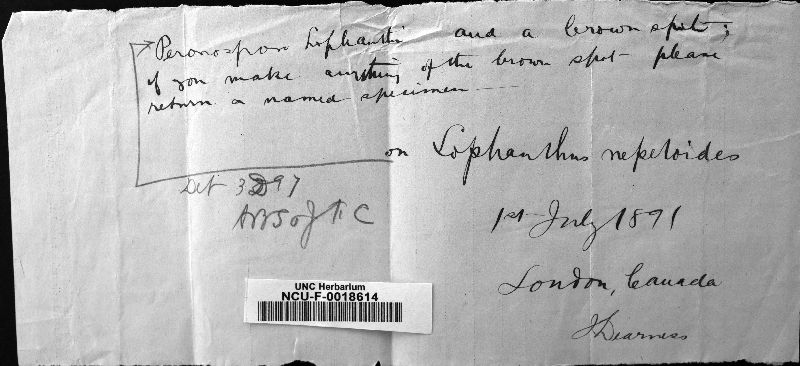 Peronospora Lophanthi and a brown spot;
if you make anything of the brown spot please
return a named specimen
on Lophanthus nepetoides
Det 3 D 97
1st July 1891
London, Canada
J Dearness
UNC Herbarium
NCU-F-0018614